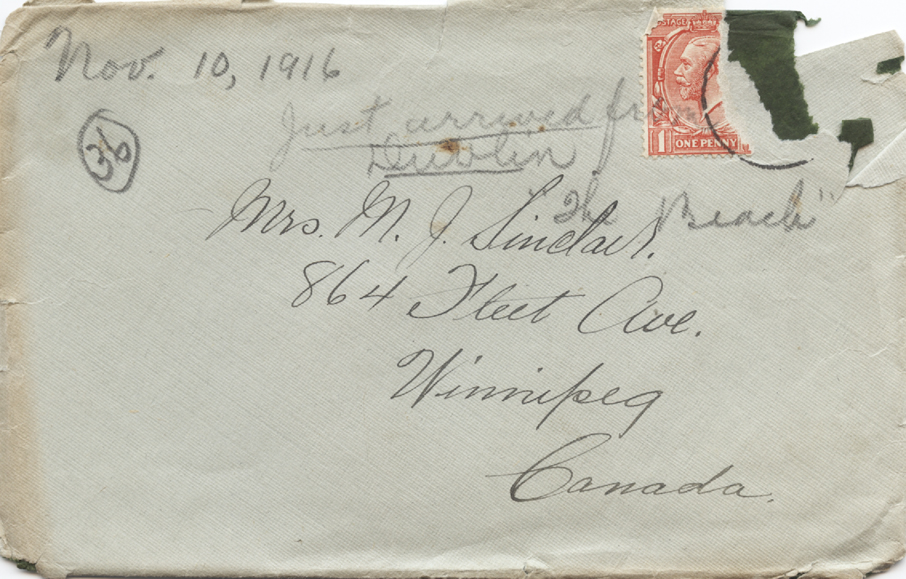 Nov. 10, 1916
36
Just arrived from
Dublin
"The Beach"
Mrs. M. J. Sinclair.
864 Fleet Ave.
Winnipeg
Canada.
POSTAGE
1 ONE PENNY